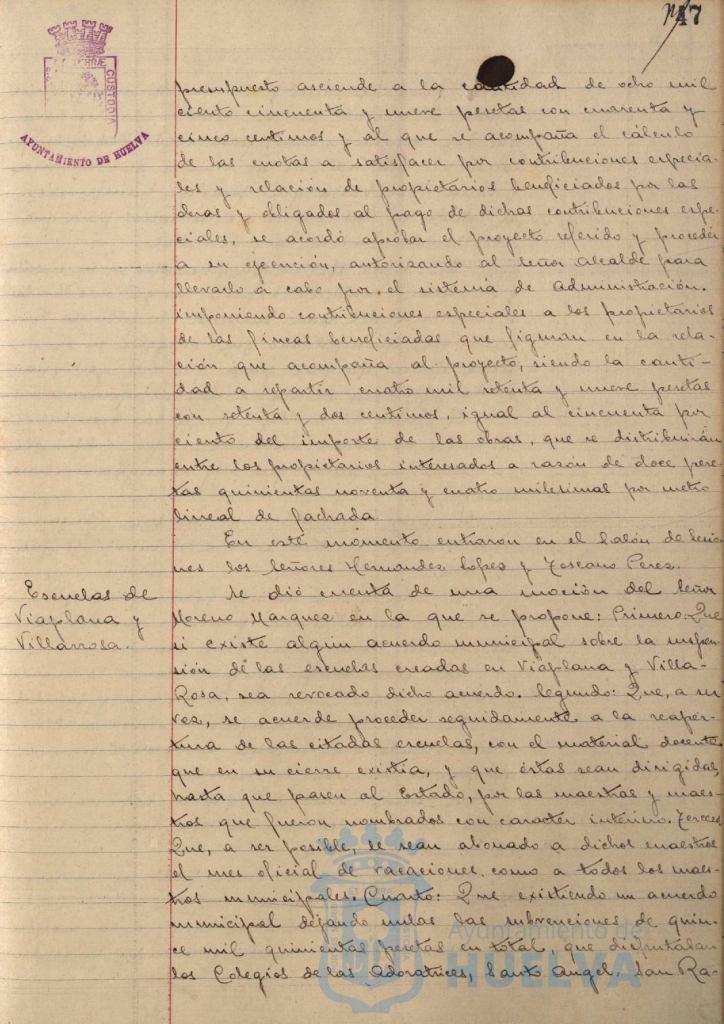 47
CUSTODIA
AYUNTAMIENTO DE HUELVA
presupuesto asciende a la cantidad de ocho mil
ciento cincuenta y nueve pesetas con cuarenta y
cinco centimos y al que se acompaña el cálculo
de las cuotas a satisfacer por contribuciones especia-
les y relación de propietarios beneficiados por las
obras y obligados al pago de dichas contribuciones espe-
ciales, se acordó aprobar el proyecto referido y proceder
a su ejecución, autorizando al Señor Alcalde para
llevarlo a cabo por el sistema de Administración.
imponiendo contribuciones especiales a los propietarios
de las fincas beneficiadas que figuran en la rela-
ción que acompaña al proyecto, siendo la canti-
dad a repartir cuatro mil setenta y nueve pesetas
con setenta y dos centimos, igual al cincuenta por
ciento del importe de las obras, que se distribuirán
entre los propietarios interesados a razón de doce pese-
tas quinientas noventa y cuatro milesimas por metro
lineal de fachada
En esté momento entraron en el Salón de Sesio-
nes los Señores Hernandez Lopez y Toscano Perez.
Escuelas de
Viaplana y
Villarrosa.
Se dió cuenta de una moción del Señor
Moreno Marquez en la que se propone: Primero: Que
si existe algún acuerdo municipal sobre la supre-
sión de las escuelas creadas en Viaplana y Villa-
Rosa, sea revocado dicho acuerdo. Segundo: Que, a su
vez, se acuerde proceder seguidamente a la reaper-
tura de las citadas escuelas, con el material docente
que en su cierre existia, y que éstas sean dirigidas,
hasta que pasen al Estado, por las maestras y maes-
tros que fueron nombrados con caracter interino. Tercero
Que, a ser posible, se sean abonado a dichos maestros
el mes oficial de vacaciones como a todos los maes-
tros municipales. Cuarto: Que existiendo un acuerdo
municipal dejando nulas las subvenciones de quin-
ce mil quinientas pesetas en total, que disfrutaban
los Colegios de las Adoratrices, Santo Angel, San Ra-
Ayuntamiento de
HUELVA